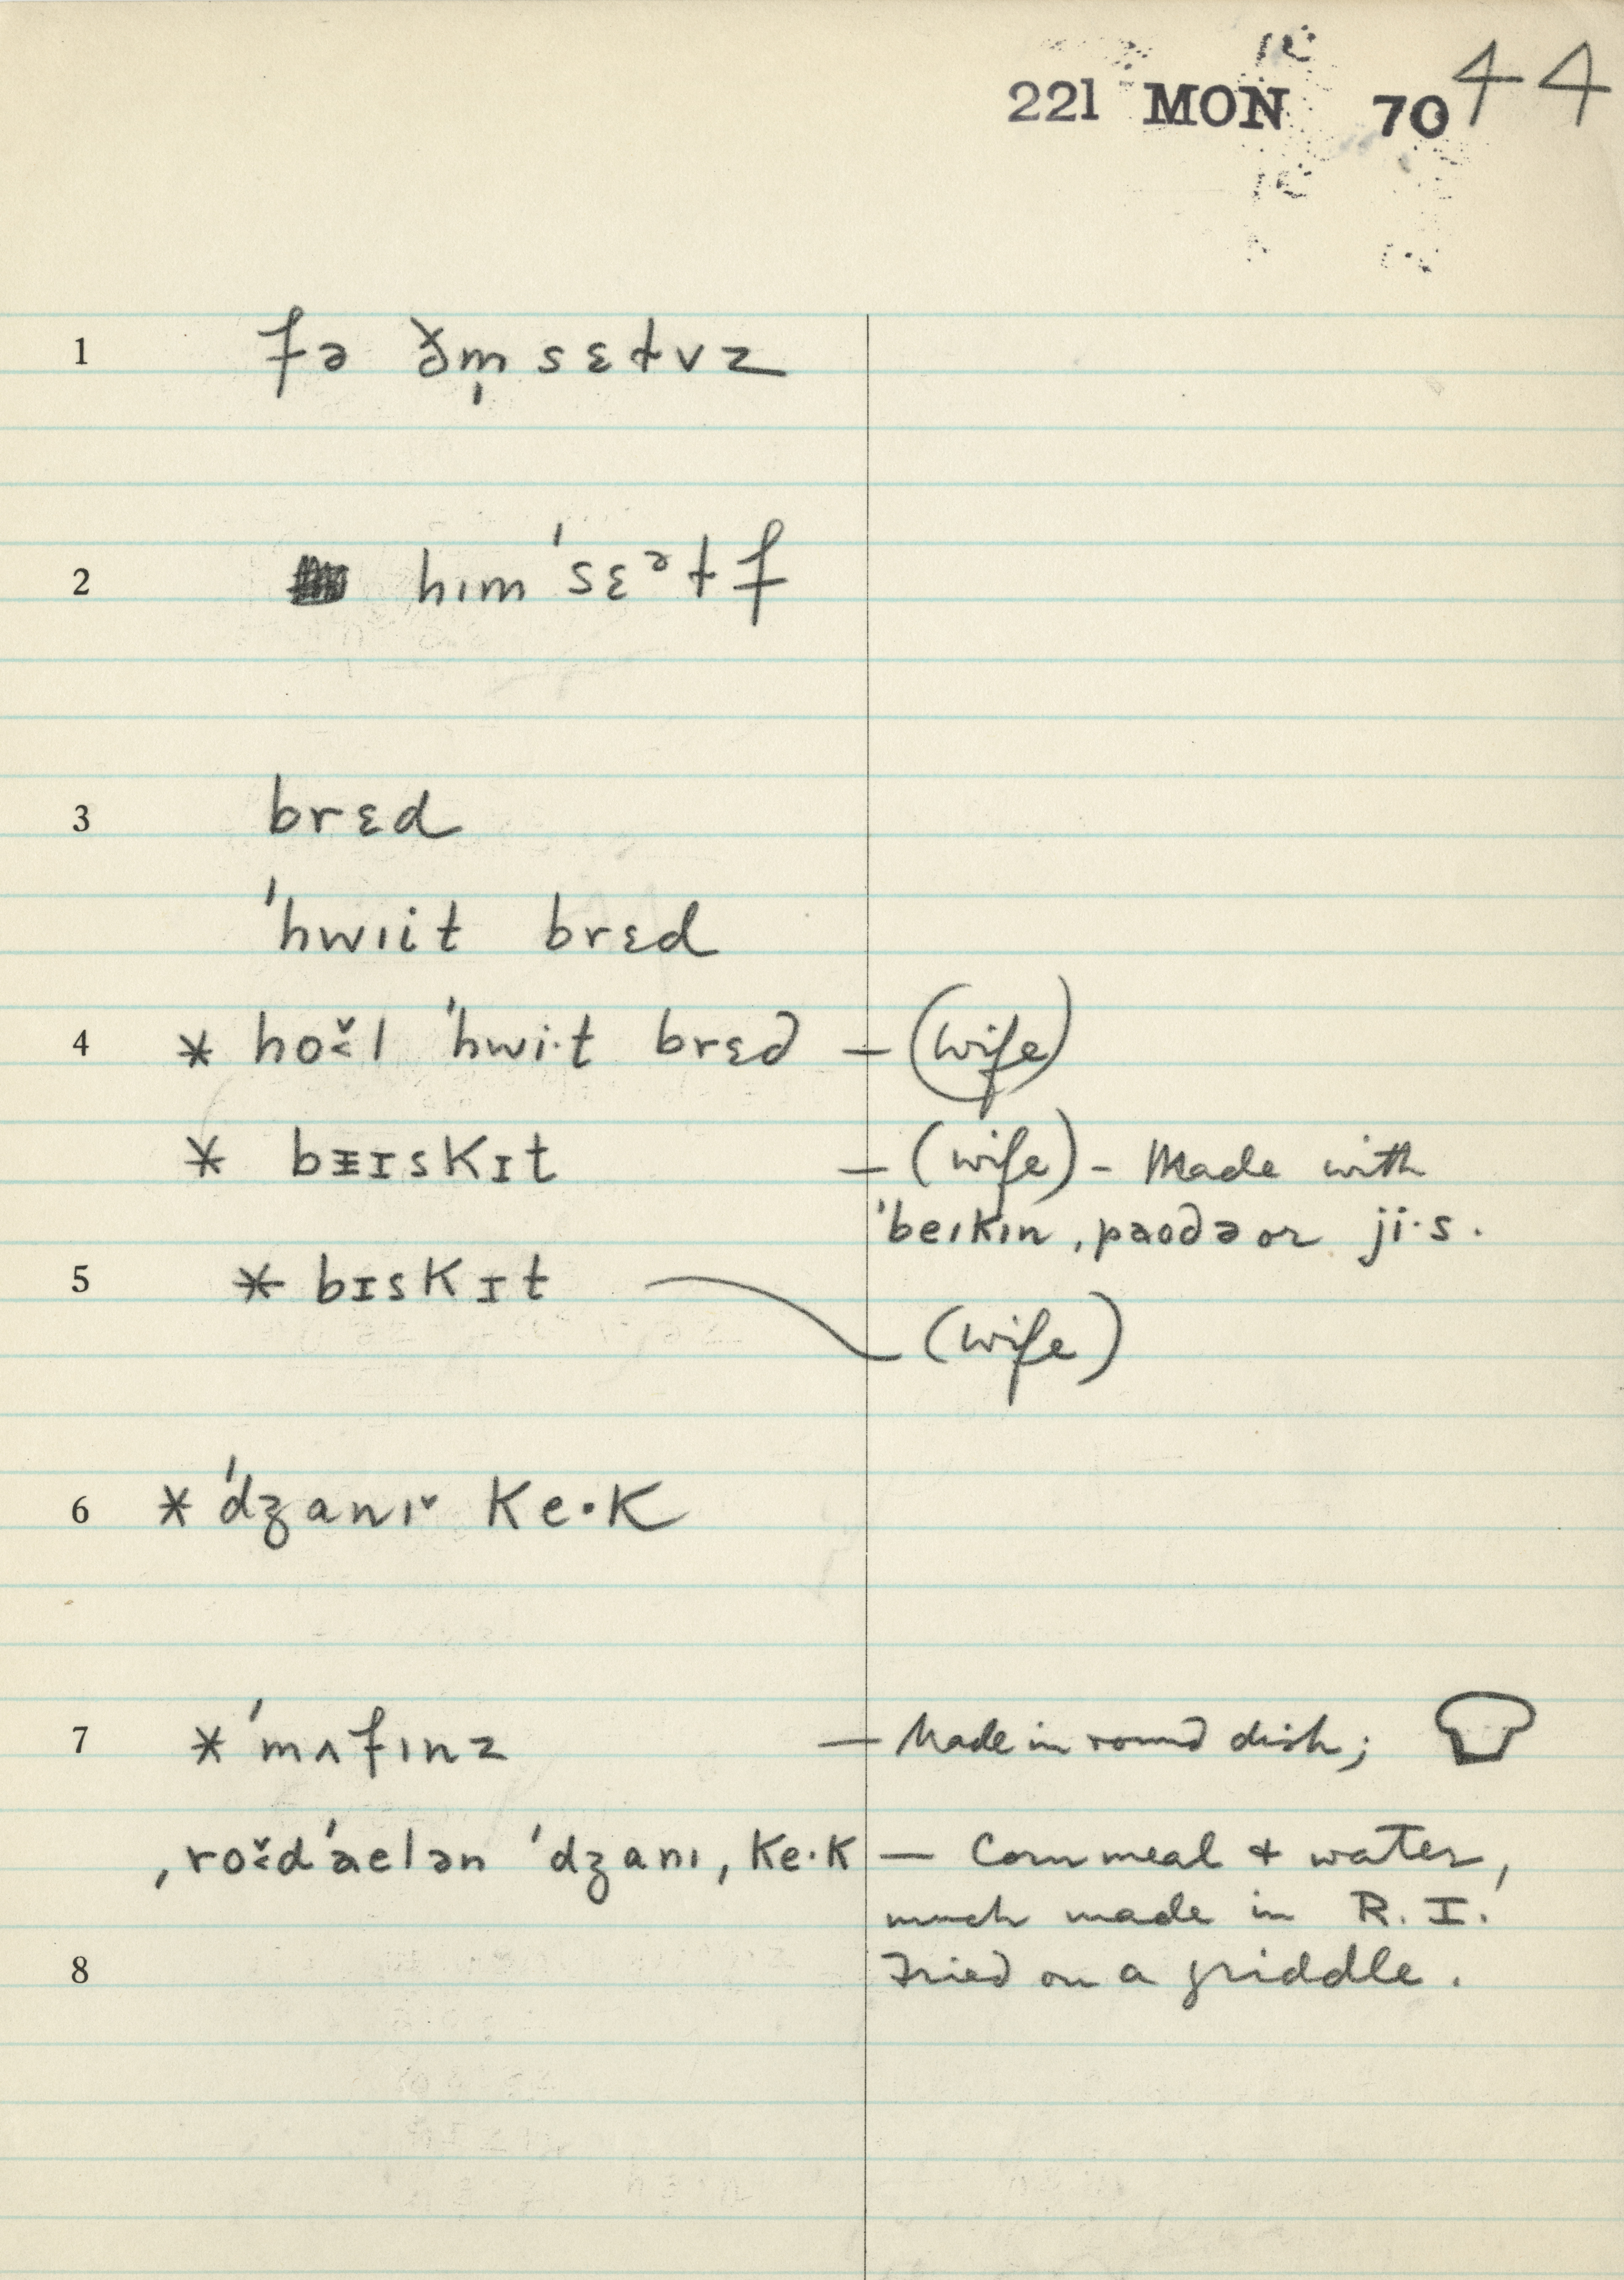 221 MON 70 44
1 fə ðm̩sɛɫvz
2 hɪm ˈsɛᵊɫf
3 brɛd
ˈhwɪit brɛd
4 * hoˇ˂l ˈhwi·t brɛd — (wife)
* bɪskɪt — (wife) - Made with
ˈbeɪkɪn ˌpaʊdə or ji·s.
5 * bɪskɪt
(wife)
6 * ˈdʒanɪˇ ke·k
7 * ˈmʌfɪnz — Made in round dish;
ˌroˇ˂dˈaelən ˈdʒanɪ ˌke·k — Corn meal + water,
much made in R. I.
8 Fried on a griddle.